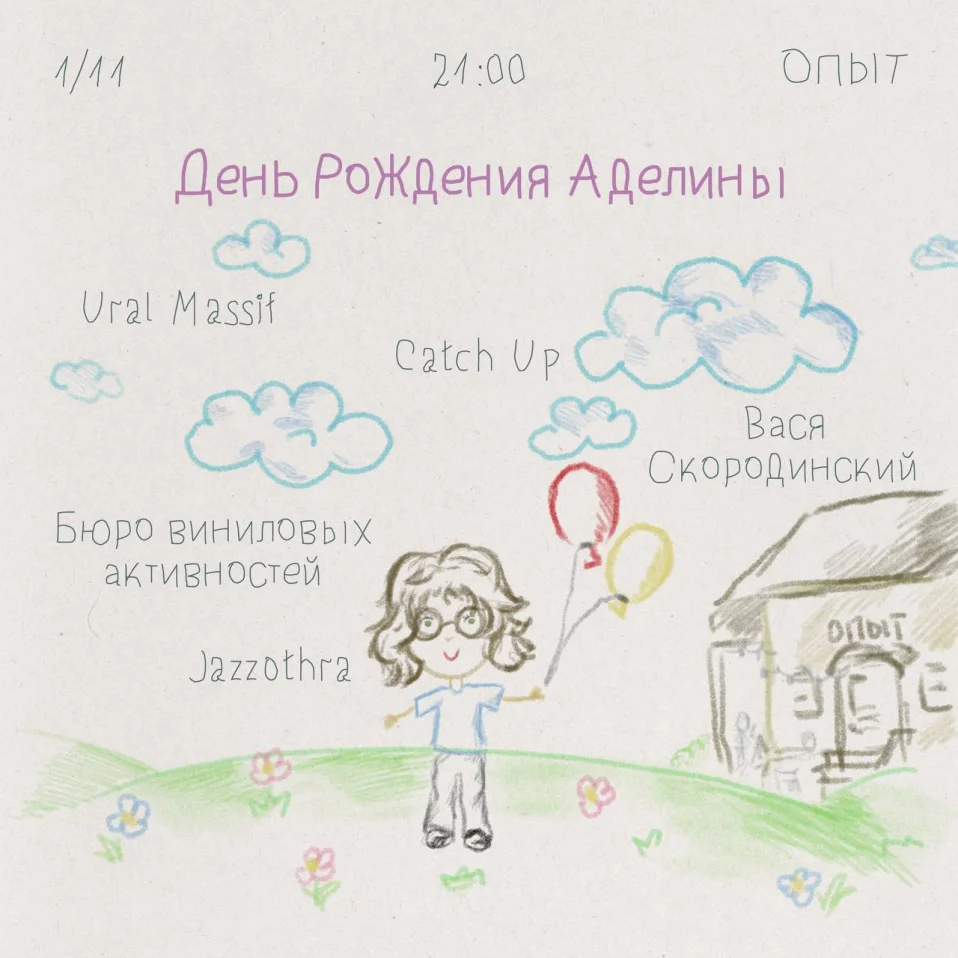 1/11
21:00
ОПЫТ
День Рождения Аделины
Ural Massif
Catch Up
Вася
Скородинский
Бюро виниловых
активностей
Jazzothra
ОПЫТ